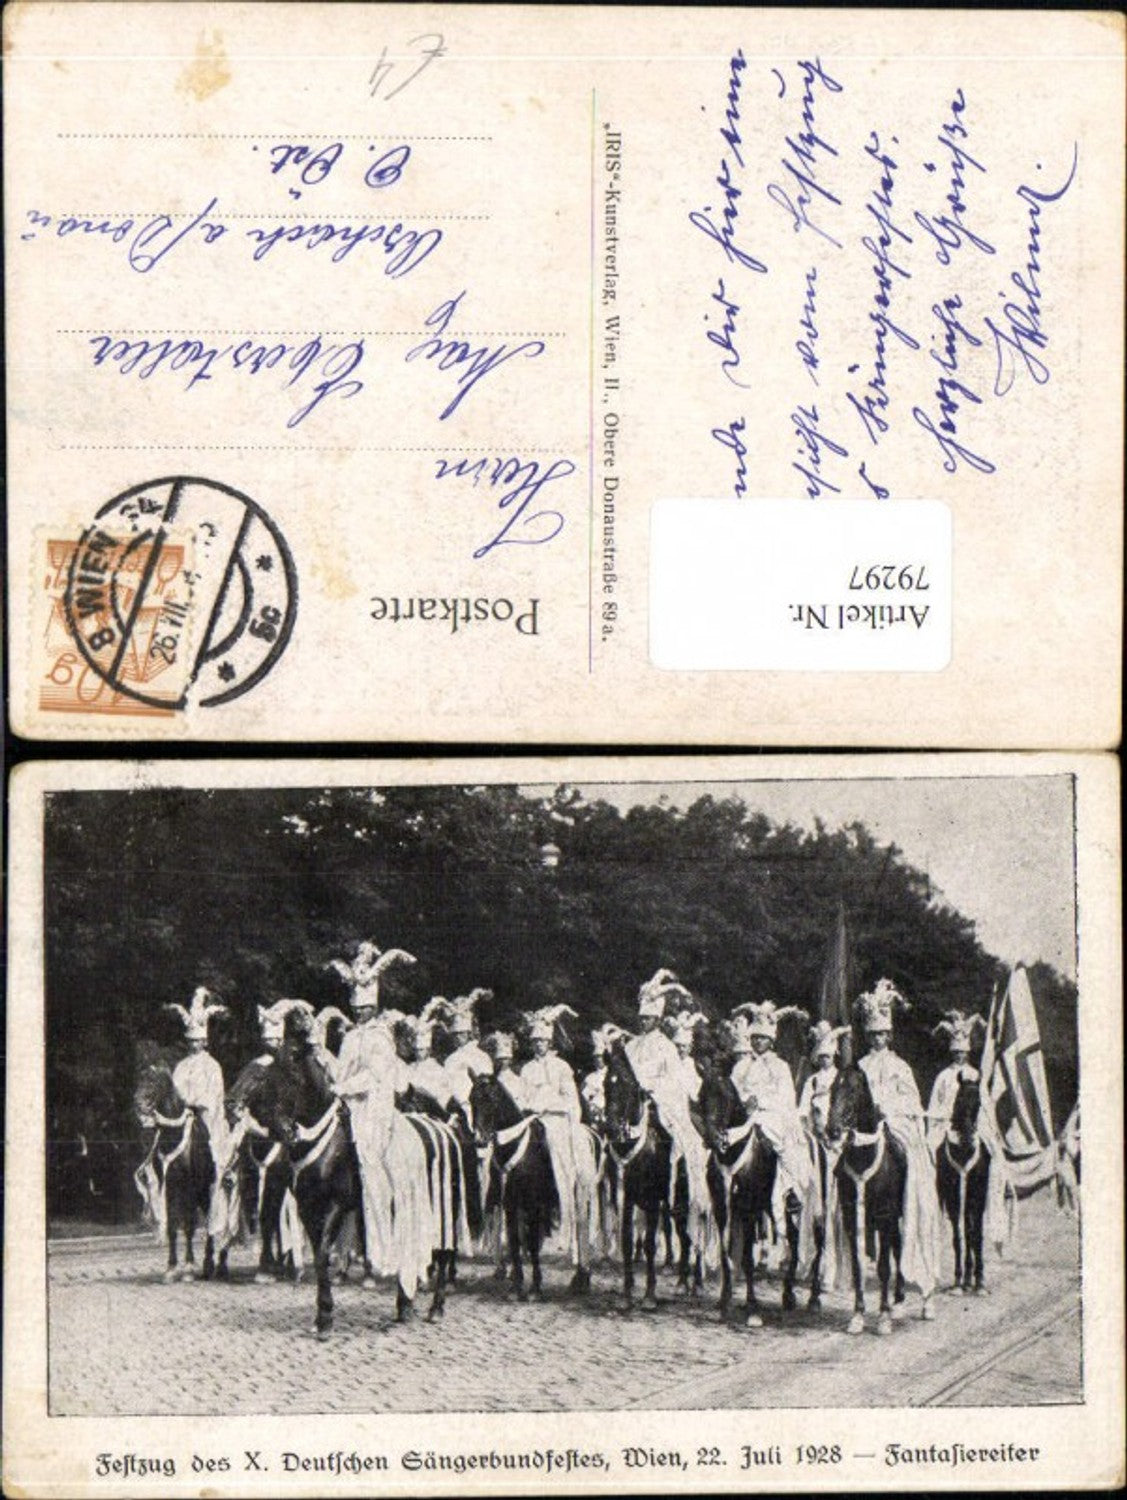 Postkarte
Herrn
Max Oberstaller
Aschach a/Donau
O. Öst.
„IRIS“-Kunstverlag, Wien, II., Obere Donaustraße 89a.
Dir hier eine
vom Festzug
Sängerfestes.
Herzliche Grüße
Artikel Nr.
79297
8 WIEN
26. VII.
5c
Festzug des X. Deutschen Sängerbundfestes, Wien, 22. Juli 1928 — Fantasiereiter